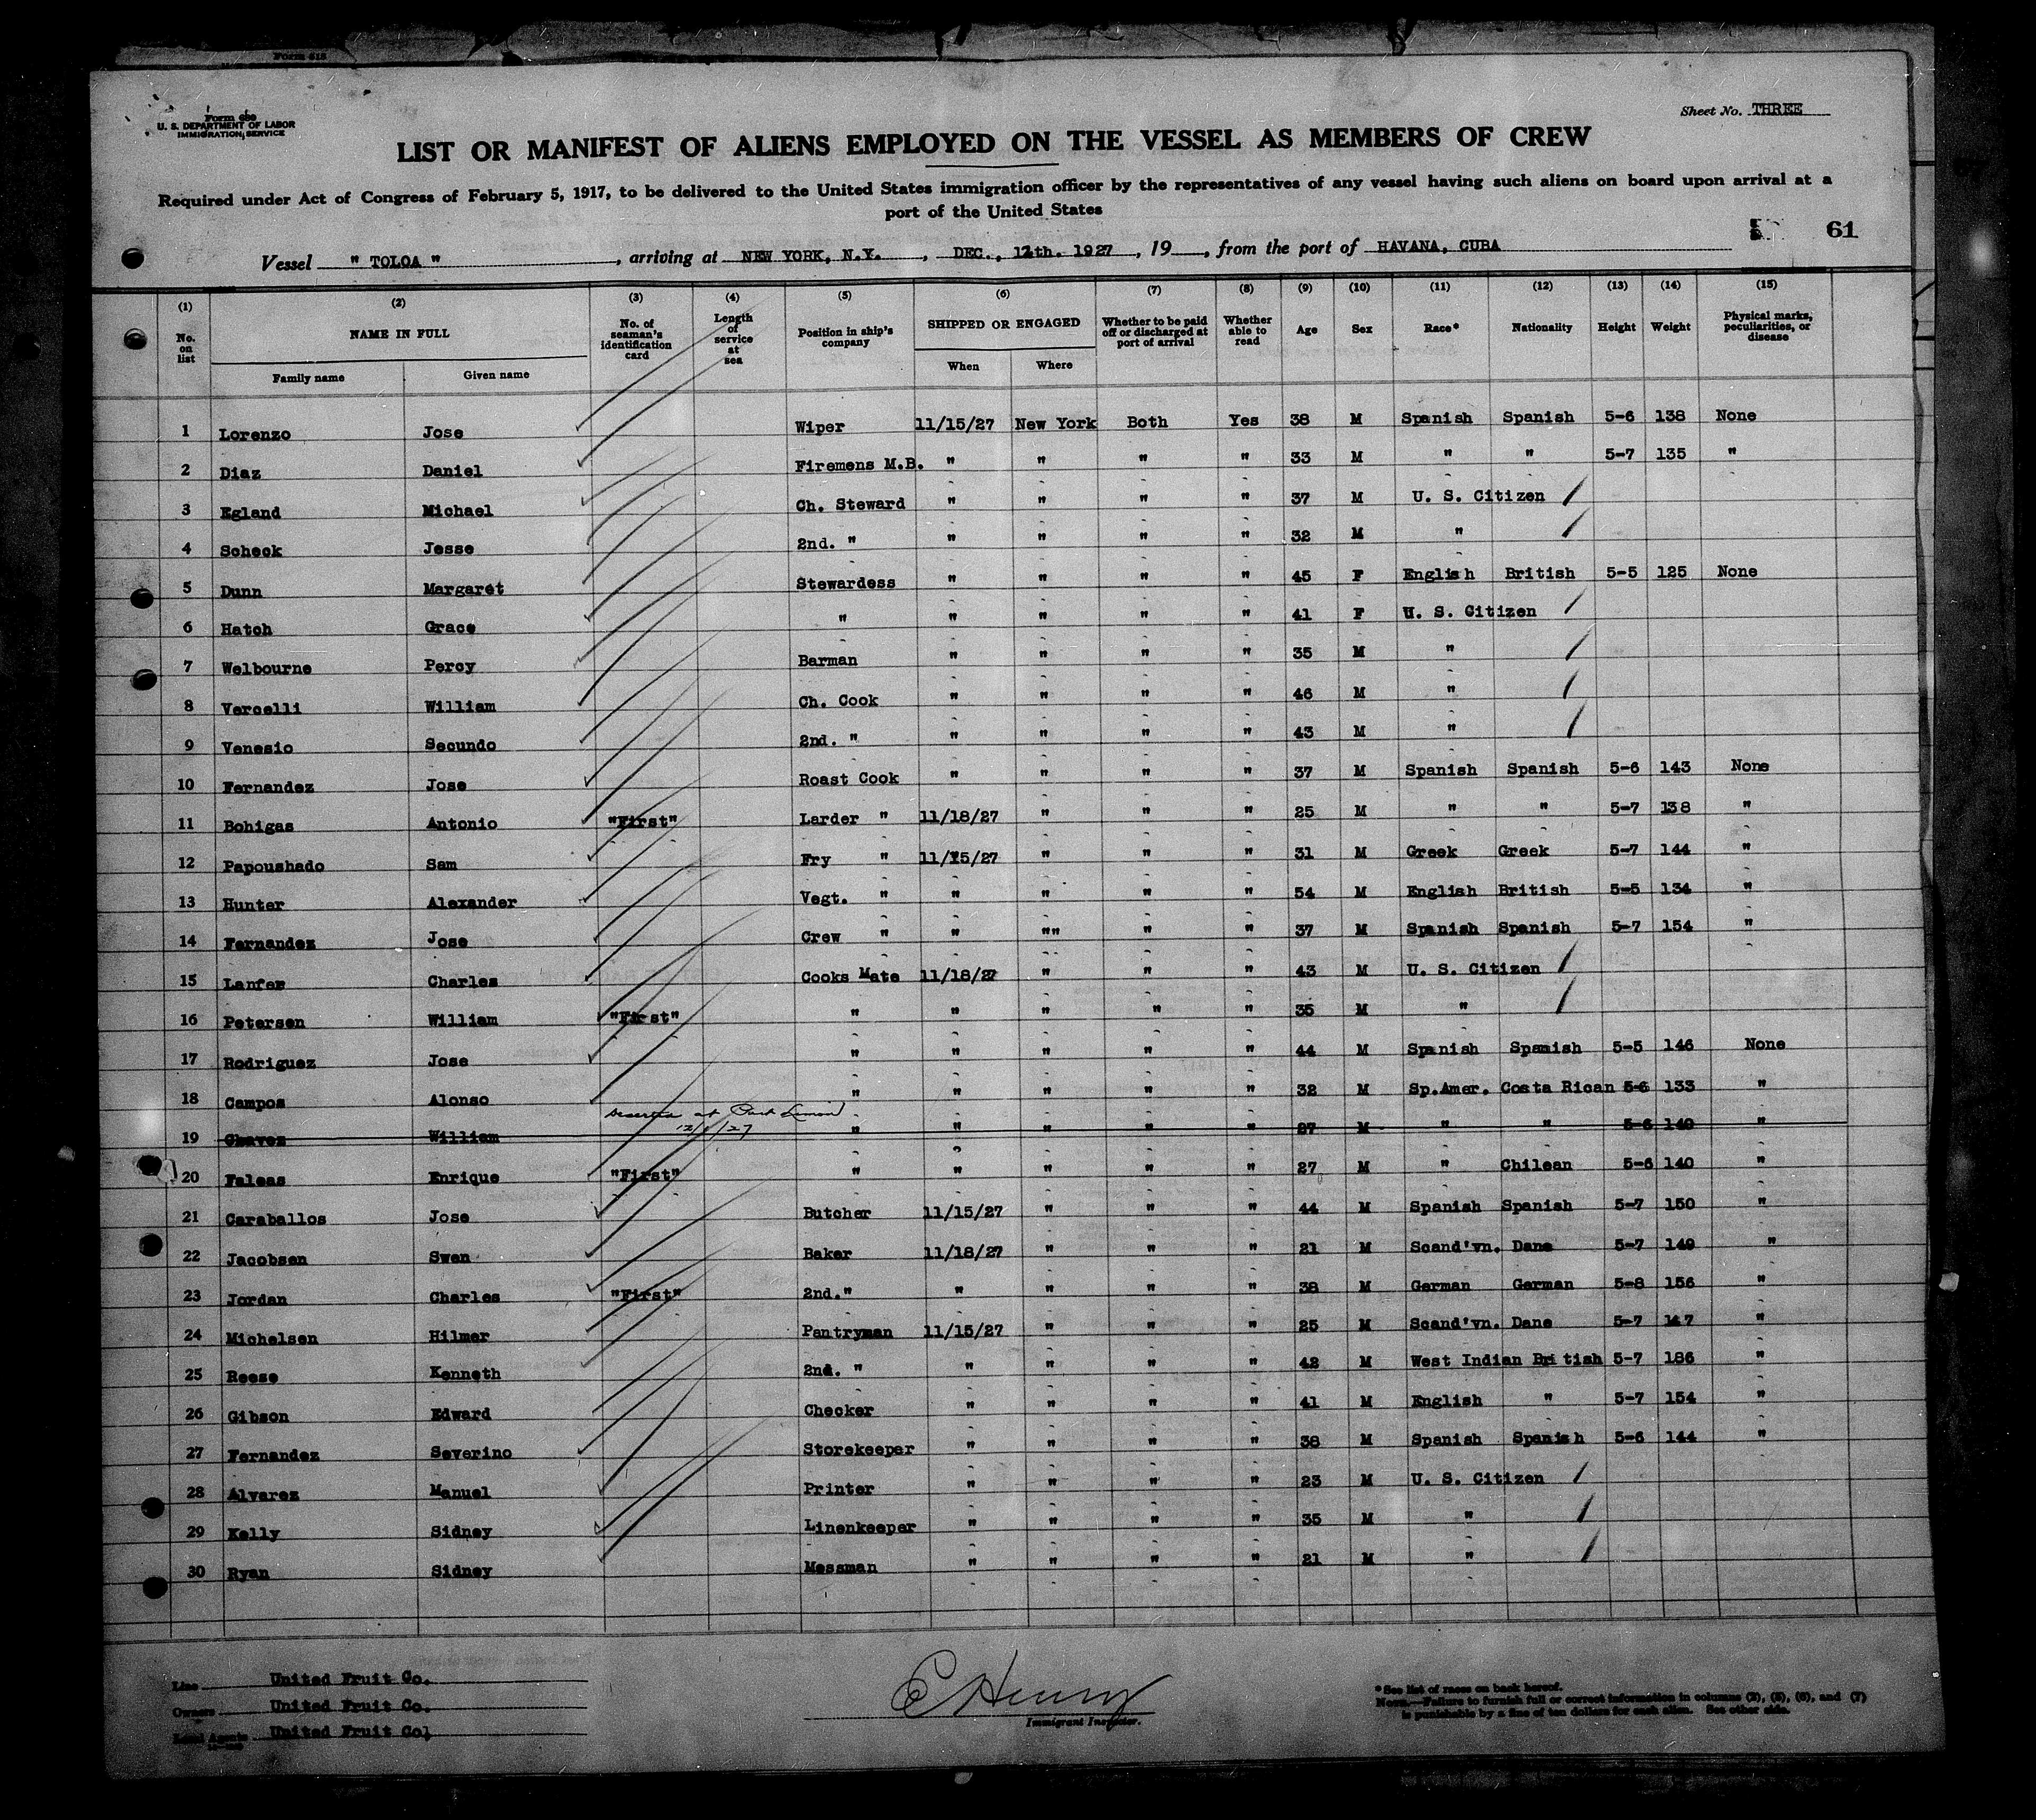 Form 618
Form 689
U. S. DEPARTMENT OF LABOR
IMMIGRATION SERVICE
Sheet No. THREE
LIST OR MANIFEST OF ALIENS EMPLOYED ON THE VESSEL AS MEMBERS OF CREW
Required under Act of Congress of February 5, 1917, to be delivered to the United States immigration officer by the representatives of any vessel having such aliens on board upon arrival at a
port of the United States
61
Vessel " TOLOA ", arriving at NEW YORK, N.Y., DEC., 12th. 1927, 19 , from the port of HAVANA, CUBA
(1) (2) (3) (4) (5) (6) (7) (8) (9) (10) (11) (12) (13) (14) (15)
No. on list NAME IN FULL No. of seaman's identification card Length of service at sea Position in ship's company SHIPPED OR ENGAGED Whether to be paid off or discharged at port of arrival Whether able to read Age Sex Race* Nationality Height Weight Physical marks, peculiarities, or disease
Family name Given name When Where
1 Lorenzo Jose Wiper 11/15/27 New York Both Yes 38 M Spanish Spanish 5-6 138 None
2 Diaz Daniel Firemens M.B. " " " " 33 M " " 5-7 135 "
3 Egland Michael Ch. Steward " " " " 37 M U. S. Citizen
4 Scheck Jesse 2nd. " " " " " 32 M "
5 Dunn Margaret Stewardess " " " " 45 F English British 5-5 125 None
6 Hatch Grace " " " " " 41 F U. S. Citizen
7 Welbourne Percy Barman " " " " 35 M "
8 Vercelli William Ch. Cook " " " " 46 M "
9 Venesio Secundo 2nd. " " " " " 43 M "
10 Fernandez Jose Roast Cook " " " " 37 M Spanish Spanish 5-6 143 None
11 Bohigas Antonio "First" Larder " 11/18/27 " " " 25 M " " 5-7 138 "
12 Papoushado Sam Fry " 11/15/27 " " " 31 M Greek Greek 5-7 144 "
13 Hunter Alexander Vegt. " " " " " 54 M English British 5-5 134 "
14 Fernandez Jose Crew " " "" " " 37 M Spanish Spanish 5-7 154 "
15 Lanfer Charles Cooks Mate 11/18/27 " " " 43 M U. S. Citizen
16 Petersen William "First" " " " " " 35 M "
17 Rodriguez Jose " " " " " 44 M Spanish Spanish 5-5 146 None
18 Campos Alonso " " " " " 32 M Sp.Amer. Costa Rican 5-6 133 "
Deserted at Port Limon
12/1/27
19 Chavez William " " " " " 27 M " " 5-6 140 "
20 Faleas Enrique "First" " " " " " 27 M " Chilean 5-6 140 "
21 Caraballos Jose Butcher 11/15/27 " " " 44 M Spanish Spanish 5-7 150 "
22 Jacobsen Swen Baker 11/18/27 " " " 21 M Scand'vn. Dane 5-7 149 "
23 Jordan Charles "First" 2nd." " " " " 38 M German German 5-8 156 "
24 Michelsen Hilmer Pantryman 11/15/27 " " " 25 M Scand'vn. Dane 5-7 147 "
25 Reese Kenneth 2nd. " " " " " 42 M West Indian British 5-7 186 "
26 Gibson Edward Checker " " " " 41 M English " 5-7 154 "
27 Fernandez Severino Storekeeper " " " " 38 M Spanish Spanish 5-6 144 "
28 Alvarez Manuel Printer " " " " 23 M U. S. Citizen
29 Kelly Sidney Linenkeeper " " " " 35 M "
30 Ryan Sidney Messman " " " " 21 M "
Line United Fruit Co.
Owners United Fruit Co.
Local Agents United Fruit Co.
E Henry
Immigrant Inspector.
* See list of races on back hereof.
NOTE.—Failure to furnish full or correct information in columns (2), (5), (6), and (7)
is punishable by a fine of ten dollars for each alien. See other side.